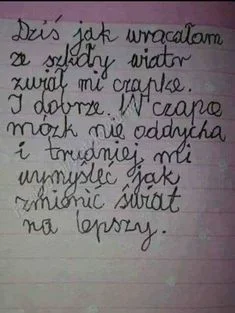 Dziś jak wracałam
ze szkoły wiatr
zwiał mi czapkę.
I dobrze. W czapce
mózk nie oddycha
i trudniej mi
wymyśleć jak
zmienić świat
na lepszy.